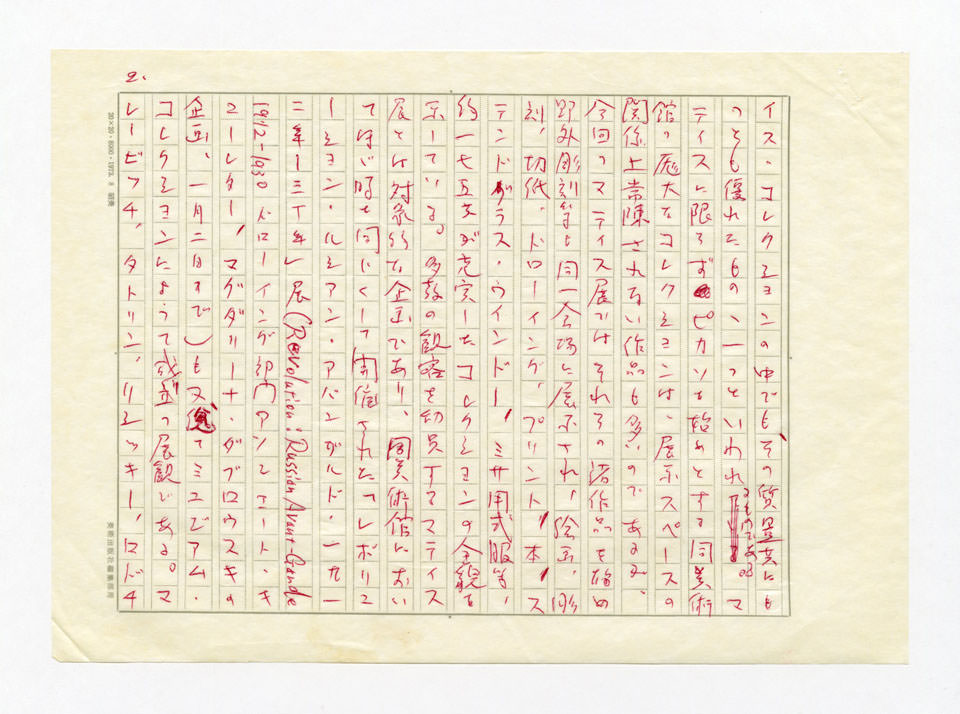 2.
イス・コレクションの中でもその質量共にも
っとも優れたものゝ一つといわれるものである。マ
ティスに限らずピカソを始めとする同美術
館の厖大なコレクションは、展示スペースの
関係上常陳されない作品も多いのであるが、
今回のマティス展ではそれらの諸作品を確め
野外彫刻等も同一会場に展示され、絵画、彫
刻、切紙、ドローイング、プリント、本、ス
テンドグラス・ウインドー、ミサ用式服等、
約一七五点が充実したコレクションの全貌を
示している。多数の観客を動員するマティス
展とは対象的な企画であり、同美術館におい
てほゞ時を同じくして開催された「レボリュ
ーション・ルシアン・アバンギャルド・一九一
二年ー三〇年」展(Revolution: Russian Avant-Garde
1912-1930 ドローイング部門アソシエート・キ
ュレーター、マグダリーナ・ダブロウスキの
企画、一月二日まで)も又、全てミュゼアム・
コレクションによって成立つ展観である。マ
レービッチ、タトリン、リシツキー、ロドチ
20×20・8000・1973. 8 胡蝶
美術出版社編集部用